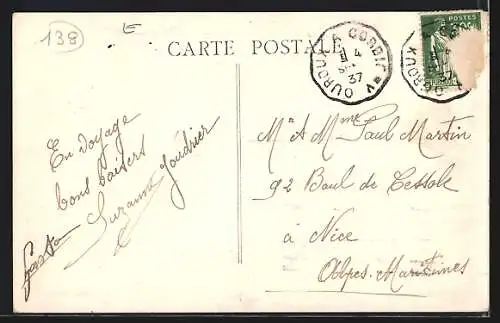 138
E
CARTE POSTALE
POSTES
A CORBIE
4
37
37
En voyage
bons baisers
Suzanne
Mr et Mme Paul Martin
92 Boul de Cessole
à Nice
Alpes-Maritimes